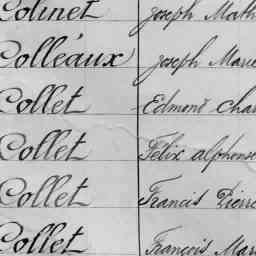 Colinet Joseph Math
Colléaux Joseph Marie
Collet Edmond Char
Collet Félix alphonse
Collet Francis Pierre
Collet François Mar